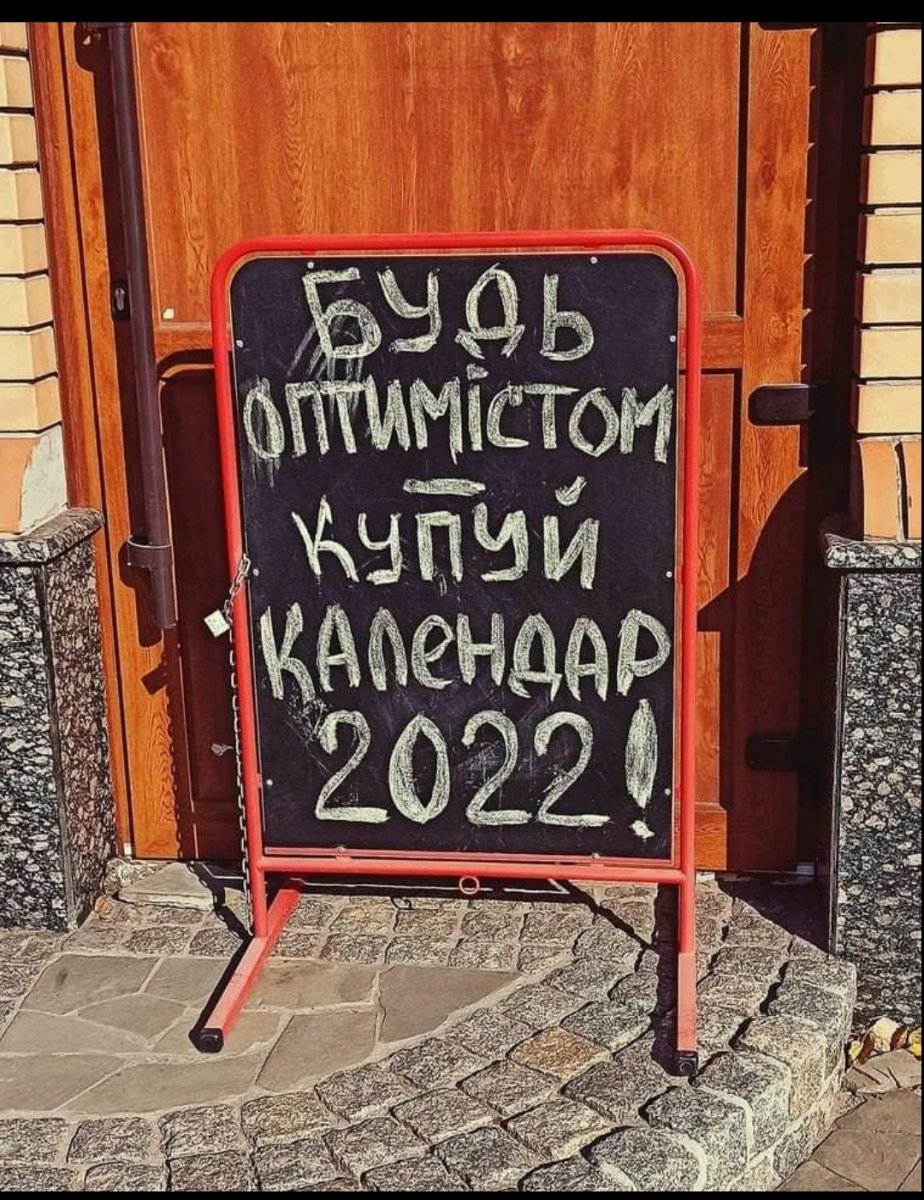 БУДЬ
ОПТИМІСТОМ
—
КУПУЙ
КАЛЕНДАР
2022!